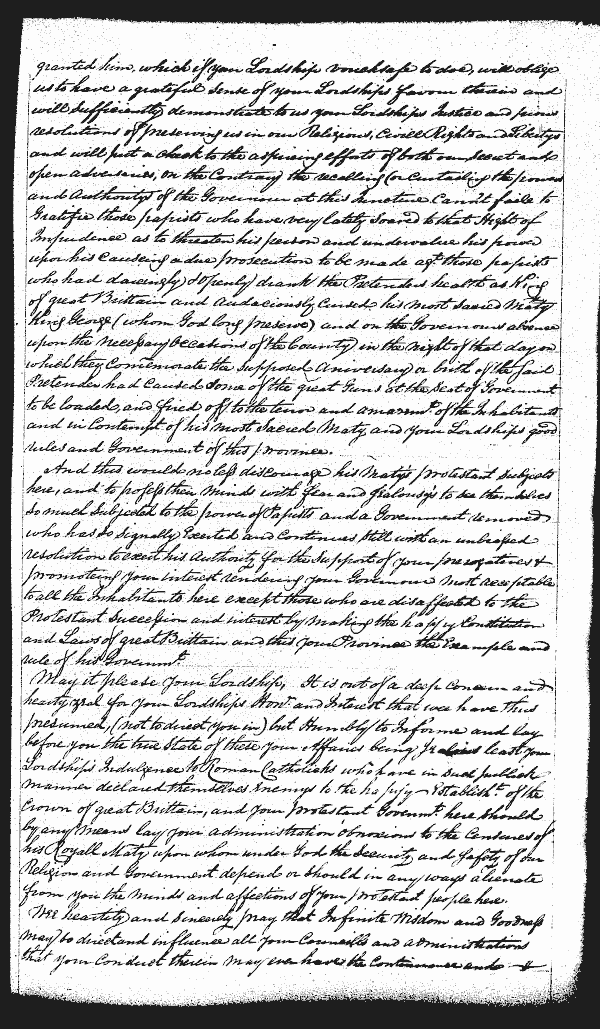 granted him, which if your Lordship vouchsafe to doe, will oblige
us to have a grateful sense of your Lordships favour therein and
will sufficiently demonstrate to us your Lordships Justice and pious
resolutions of preserving us in our Religious, Civill Rights and Libertys
and will put a check to the aspiring efforts of both our secret and
open adversaries, on the Contrary the recalling (or Curtailing the powers
and Authoritys of the Governour at this Juncture Cannot faile to
Gratifie those papists who have very lately soared to that Hight of
Impudence as to threaten his person and undervalue his power
upon his causeing a due prosecution to be made agt. those papists
who had dareingly & openly drank the Pretenders health as King
of great Brittain and audaciously Cursed his most Sacred Maty
King George (whom God long preserve) and on the Governours absence
upon the necessary Occasions of the County in the night of that day on
which they Comemorate the supposed Aniversary or birth of the said
Pretender had Caused some of the great Guns at the Seat of Government
to be loaded, and fired off to the terror and amazmt. of the Inhabitants
and in Contempt of his most Sacred Maty, and your Lordships good
rules and Government of this province.
And this would no less discourage his Matys protestant Subjects
here, and to possess their minds with fear and Jealousys to see themselves
so much Subjected to the power of Papists and a Governour removed
who has so signally Exerted and Continues Still with an unbeassed
resolution to exert his Authority for the Support of your prerogatives &
promoteing your interest rendering your Governour most acceptable
to all the Inhabitants here except those who are disaffected to the
Protestant Succession and interest by making the happy Constitution
and Laws of great Brittain and this your Province the Example and
rule of his Governmt.
May it please your Lordship, It is out of a deep Concern and
hearty zeal for your Lordships Honr. and Interest that wee have thus
presumed, (not to direct you in) but Humbly to Informe and lay
before you the true State of these your Affairs being least your
Lordships Indulgence to Roman Catholicks who have in such publick
manner declared themselves Enemys to the happy Establisht. of the
Crown of great Brittain, and your Protestant Governmt. here should
by any means lay your administration obnoxious to the Censures of
his Royall Maty upon whom under God the Security and Safety of our
Religion and Government depend or should in any ways alienate
from you the minds and affections of your protestant people here.
Wee heartily and sincerely pray that Infinite Wisdom and Goodness
may so direct and influence all your Councills and administrations
that your Conduct therein may ever have the Continuance and